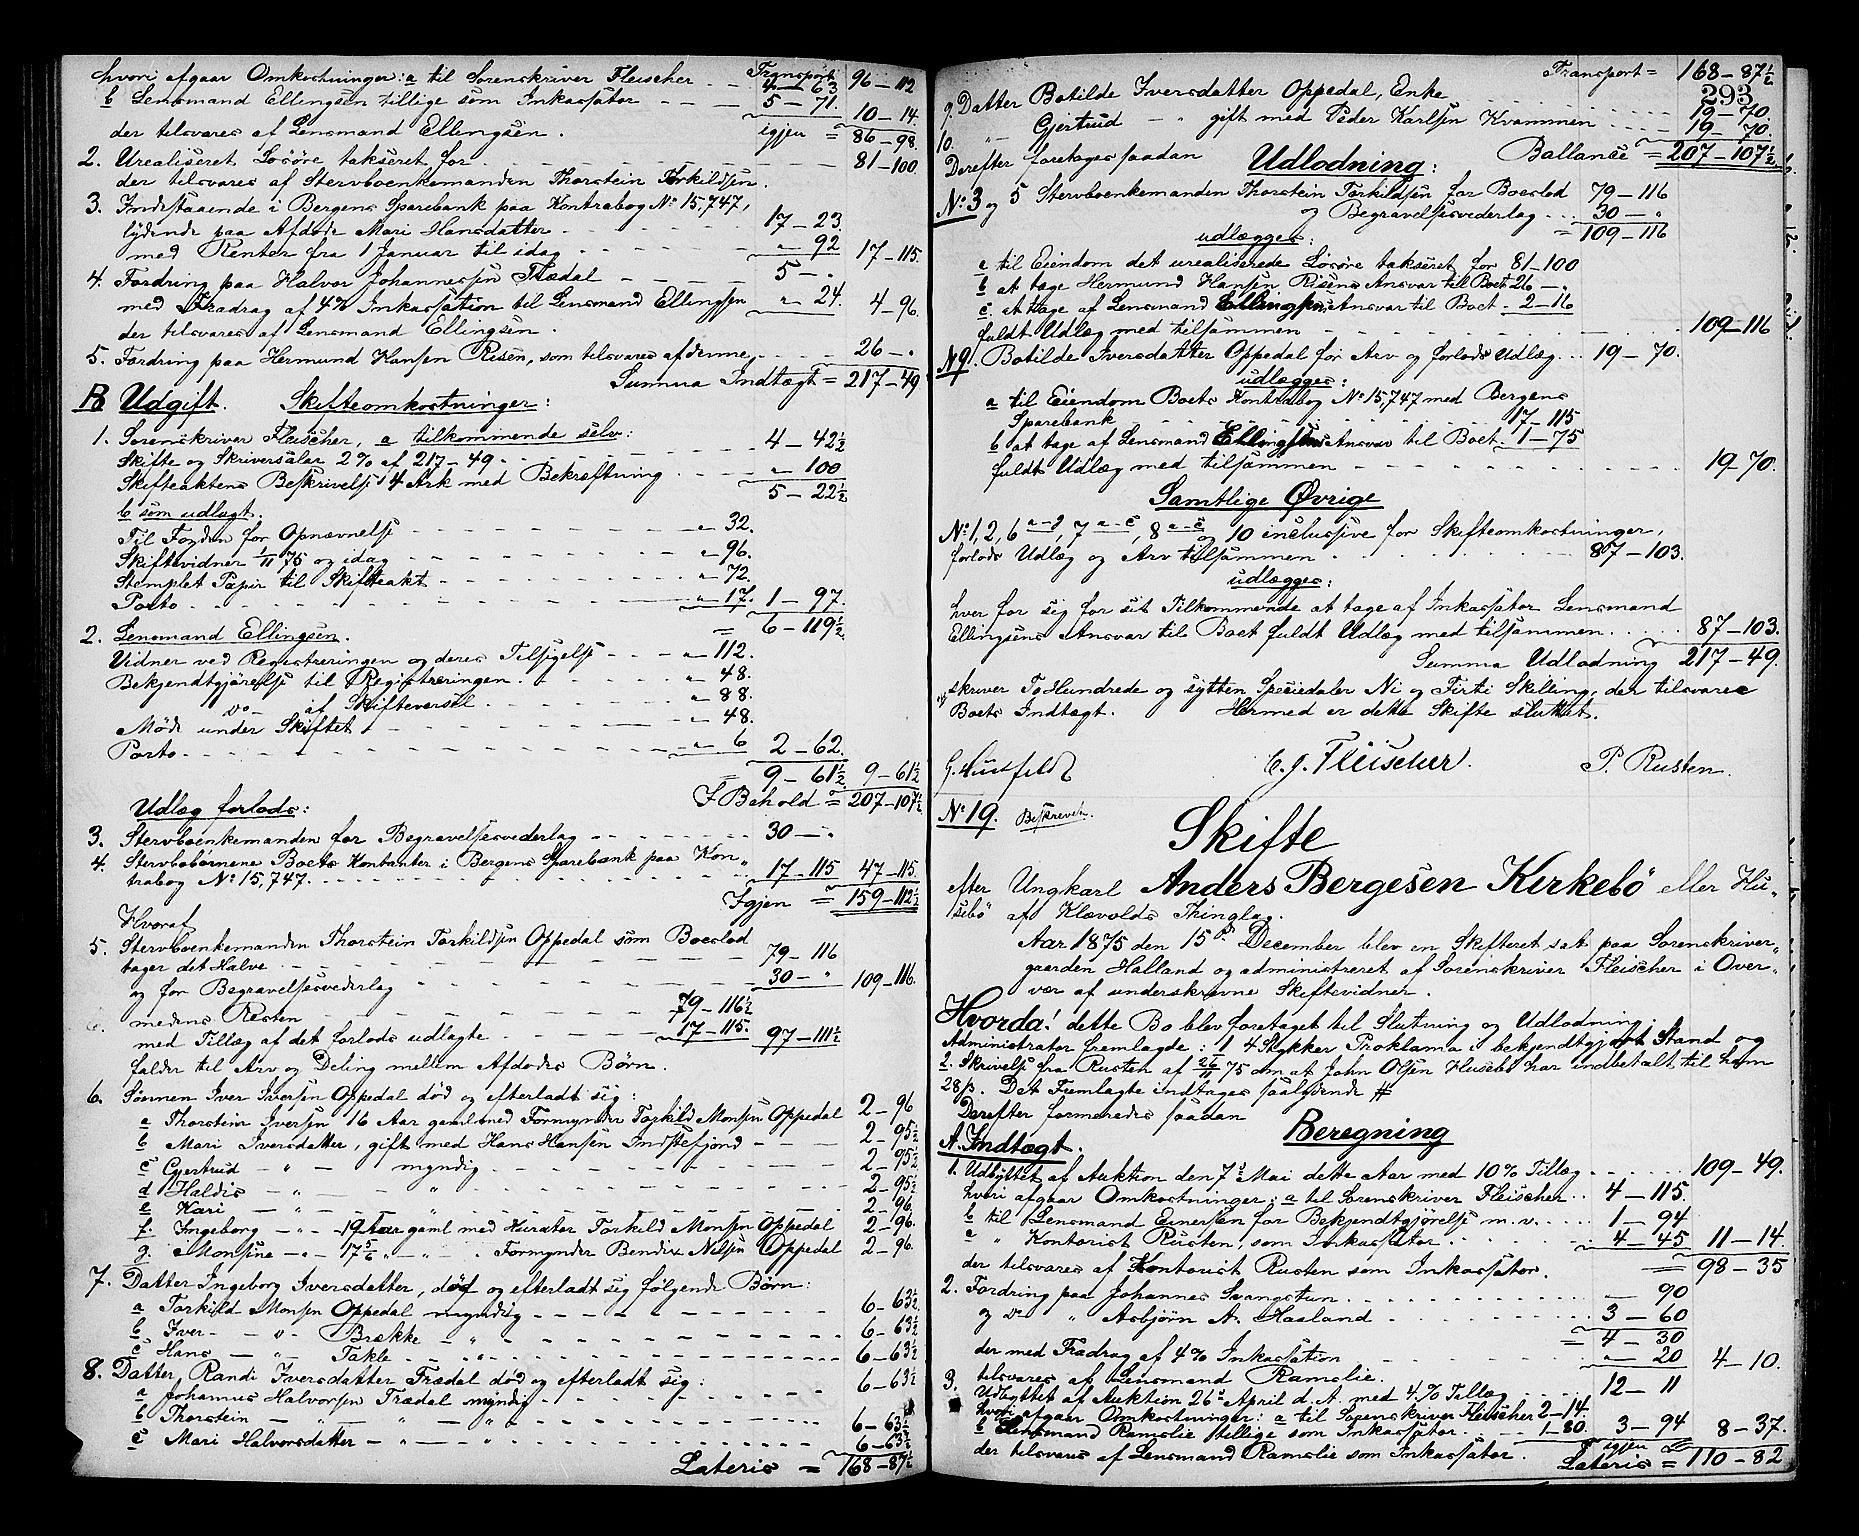 Transport 96 – 112
hvori afgaar Omkostninger: a til Sorenskriver Fleischer 4 – 63
b Lensmand Ellingsen tillige som Inkassator 5 – 71. 10 – 14.
der tilsvares af Lensmand Ellingsen. igjen = 86 – 98.
2. Urealiseret Løsøre takseret for 81 – 100
der tilsvares af Stervboenkemanden Thorstein Torkildsen.
3. Indestaaende i Bergens Sparebank paa Kontrabog No 15,747,
lydende paa Afdøde Mari Hansdatter 17 – 23.
med Renter fra 1 Januar til idag " 92 17 – 115.
4. Fordring paa Halvor Johannessen Trædal 5 – ".
med Fradrag af 4% Inkassation til Lensmand Ellingsen " 24. 4 – 96.
der tilsvares af Lensmand Ellingsen.
5. Fordring paa Hermund Hansen Risen, som tilsvares af denne 26 – ".
Summa Indtægt = 217 – 49
B Udgift. Skifteomkostninger:
1. Sorenskriver Fleischer, a tilkommende selv:
Skifte og Skriversalær 2% af 217 – 49 4 – 42½
Skifteaktens Beskrivelse 4 Ark med Bekræftning " 100
5 – 22½
b som udlagt.
Til Fogden for Opnævnelse " 32.
Skiftevidner 1/11 75 og idag " 96.
Stemplet Papir til Skifteakt " 72.
Porto " 17. 1 – 97.
= 6 – 119½
2. Lensmand Ellingsen.
Vidner ved Registreringen og deres Tilsigelse " 112.
Bekjendtgjørelse til Registreringen " 48.
Do af Skiftevarsel " 88.
Møde under Skiftet " 48.
Porto " 6 2 – 62.
= 9 – 61½ 9 – 61½
I Behold = 207 – 107½
Udlæg forlods:
3. Stervboenkemanden for Begravelsesvederlag 30 – ".
4. Stervbobørnene Boets Kontanter i Bergens Sparebank paa Kon-
trabog No 15,747. 17 – 115 47 – 115.
Igjen = 159 – 112½
Hvoraf
5. Stervboenkemanden Thorstein Torkildsen Oppedal som Boeslod
tager det Halve 79 – 116
og for Begravelsesvederlag 30 – " 109 – 116.
medens Resten 79 – 116½
med Tillæg af det forlods udlagte 17 – 115. 97 – 111½
falder til Arv og Deling mellem Afdødes Børn.
6. Sønnen Iver Iversen Oppedal død og efterladt sig:
a Thorstein Iversen 16 Aar gaml med Formynder Torkild Monsen Oppedal 2 – 96
b Mari Iversdatter, gift med Hans Hansen Indrefjord 2 – 95½
c Gjertrud – " – myndig 2 – 95½
d Haldis – " – " 2 – 95½
e Kari – " – " 2 – 96.
f. Ingeborg – " – 19 Aar gaml med Kurator Torkild Monsen Oppedal 2 – 96.
g. Monsine – " – 17 5/6 " – " Formynder Bendix Nilsen Oppedal 2 – 96.
7. Datter Ingeborg Iversdatter, død og efterladt sig følgende Børn:
a Torkild Monsen Oppedal myndig 6 – 63½
b Iver – " – Brække – " 6 – 63½
c Hans – " – Takle – " 6 – 63½
8. Datter Randi Iversdatter Trædal død og efterladt sig:
a Johannes Halvorsen Trædal myndig 6 – 63½
b Thorstein – " – " – " 6 – 63½
c Mari Halvorsdatter – " – " 6 – 63½
Lateris = 168 – 87½
Transport = 168 – 87½
293
9. Datter Botilde Iversdatter Oppedal, Enke 19 – 70.
10. – " Gjertrud – " gift med Peder Karlsen Kvammen 19 – 70.
Ballance = 207 – 107½
Derefter foretoges saadan Udlodning:
No 3 og 5 Stervboenkemanden Thorstein Torkildsen for Boeslod 79 – 116
og Begravelsesvederlag 30 – "
= 109 – 116
udlægges:
a til Eiendom det urealiserede Løsøre takseret for 81 – 100
b at tage Hermund Hansen Risens Ansvar til Boet 26 – ".
c at tage af Lensmand Ellingsens Ansvar til Boet 2 – 16
fuldt Udlæg med tilsammen 109 – 116
No 9. Botilde Iversdatter Oppedal for Arv og forlods Udlæg 19 – 70.
udlægges:
a til Eiendom Boets Kontrabog No 15,747 med Bergens
Sparebank 17 – 115
b at tage af Lensmand Ellingsens Ansvar til Boet 1 – 75
fuldt Udlæg med tilsammen 19 70.
Samtlige Øvrige
No 1, 2, 6 a–g, 7 a–c, 8 a–c og 10 inclusive for Skifteomkostninger,
forlods Udlæg og Arv tilsammen 87 – 103.
udlægges:
hver for sig for sit Tilkommende at tage af Inkassator Lensmand
Ellingsens Ansvar til Boet fuldt Udlæg med tilsammen 87 – 103.
Summa Udlodning 217 – 49.
skriver To Hundrede og sytten Speciedaler Ni og Firti Skilling, der tilsvarer
Boets Indtægt. Hermed er dette Skifte sluttet.
G. Huitfeldt C. J. Fleischer. P. Rusten.
No 19. Beskreven.
Skifte
efter Ungkarl Anders Bergesen Kirkebø eller Hu-
sebø af Klævolds Thinglag.
Aar 1875 den 15de December blev en Skifteret sat paa Sorenskriver-
gaarden Halland og administreret af Sorenskriver Fleischer i Over-
vær af underskrevne Skiftevidner.
Hvorda! dette Bo blev foretaget til Slutning og Udlodning.
Administrator fremlagde: 1 4 Stykker Proklama i bekjendtgjort Stand og
2. Skrivelse fra Rusten af 26/11 75 om at John Olsen Husebø har indbetalt til ham
28 ß. Det Fremlagte indtages saalydende #
Derefter formeredes saadan
Beregning
A. Indtægt.
1. Udbyttet af Auktion den 7de Mai dette Aar med 10% Tillæg 109 – 49.
hvori afgaar Omkostninger: a til Sorenskriver Fleischer 4 – 115.
b til Lensmand Einersen for Bekjendtgjørelse m. v. 1 – 94
c " Kontorist Rusten, som Inkassator 4 – 45 11 – 14.
der tilsvares af Kontorist Rusten som Inkassator. = 98 – 35
2. Fordring paa Johannes Svangstun – 90
og do " Asbjørn A. Hasland 3 – 60
= 4 – 30
der med Fradrag af 4% Inkassation " 20 4 – 10.
tilsvares af Lensmand Ramslie.
3. Udbyttet af Auktion 26de April d. A. med 4% Tillæg 12 – 11
hvori afgaar Omkostninger: a til Sorenskriver Fleischer 2 – 14.
b Lensmand Ramslie tillige som Inkassator. 1 – 80. 3 – 94 8 – 37.
der tilsvares af Lensmand Ramslie som Inkassator. igjen =
Lateris = 110 – 82